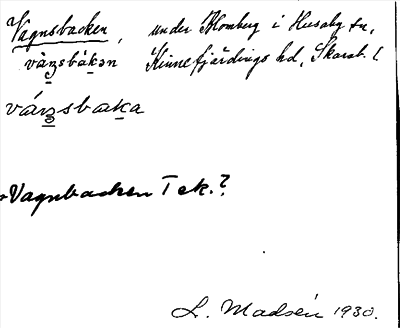 Vagnsbacken, under Blomberg i Husaby sn,
vàꞑsbàkən Kinnefjärdings hd, Skarab. l
váꞑsbaka
Vagnbacken Tek.?
L. Madsén 1930.